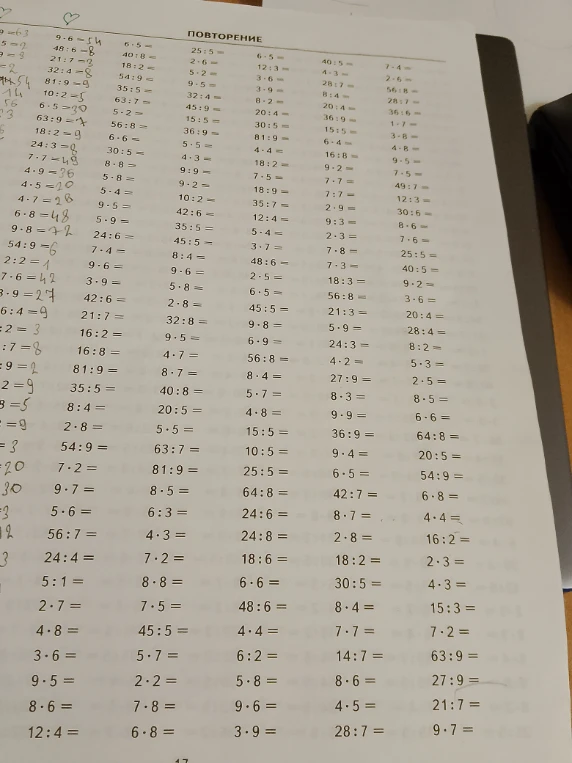 ПОВТОРЕНИЕ
9·6=54
48:6=8
21:7=3
32:4=8
81:9=9
10:2=5
6·5=30
63:9=7
18:2=9
24:3=8
7·7=49
4·9=36
4·5=20
4·7=28
6·8=48
9·8=72
54:9=6
2:2=1
7·6=42
3·9=27
6:4=9
:2=3
:7=8
:9=2
2=9
8=5
=9
=3
=20
=30
=3
12
3
6·5=
40:8=
18:2=
54:9=
35:5=
63:7=
5·2=
56:8=
6·6=
30:5=
8·8=
5·8=
5·4=
9·5=
5·9=
24:6=
7·4=
9·6=
3·9=
42:6=
21:7=
16:2=
16:8=
81:9=
35:5=
8:4=
2·8=
54:9=
7·2=
9·7=
5·6=
56:7=
24:4=
5:1=
2·7=
4·8=
3·6=
9·5=
8·6=
12:4=
25:5=
2·6=
5·2=
9·5=
32:4=
45:9=
15:5=
36:9=
5·5=
4·3=
9:9=
9·2=
10:2=
42:6=
35:5=
45:5=
8:4=
9·6=
5·8=
2·8=
32:8=
9·5=
4·7=
8·7=
40:8=
20:5=
5·5=
63:7=
81:9=
8·5=
6:3=
4·3=
7·2=
8·8=
7·5=
45:5=
5·7=
2·2=
7·8=
6·8=
6·5=
12:3=
3·6=
3·9=
8·2=
20:4=
30:5=
81:9=
4·4=
18:2=
7·5=
18:9=
35:7=
12:4=
5·4=
3·7=
48:6=
2·5=
6·5=
45:5=
9·8=
6·9=
56:8=
8·4=
5·7=
4·8=
15:5=
10:5=
25:5=
64:8=
24:6=
24:8=
18:6=
6·6=
48:6=
4·4=
6:2=
5·8=
9·6=
3·9=
40:5=
4·3=
28:7=
8:4=
20:4=
36:9=
15:5=
6·4=
16:8=
9·2=
7·7=
7:7=
2·9=
9:3=
2·3=
7·8=
7·3=
18:3=
56:8=
21:3=
5·9=
24:3=
4·2=
27:9=
8·3=
9·9=
36:9=
9·4=
6·5=
42:7=
8·7=
2·8=
18:2=
30:5=
8·4=
7·7=
14:7=
8·6=
4·5=
28:7=
7·4=
2·6=
56:8=
28:7=
36:6=
1·7=
3·8=
4·8=
9·5=
7·5=
49:7=
12:3=
30:6=
8·6=
7·6=
25:5=
40:5=
9·2=
3·6=
20:4=
28:4=
8:2=
5·3=
2·5=
8·5=
6·6=
64:8=
20:5=
54:9=
6·8=
4·4=
16:2=
2·3=
4·3=
15:3=
7·2=
63:9=
27:9=
21:7=
9·7=